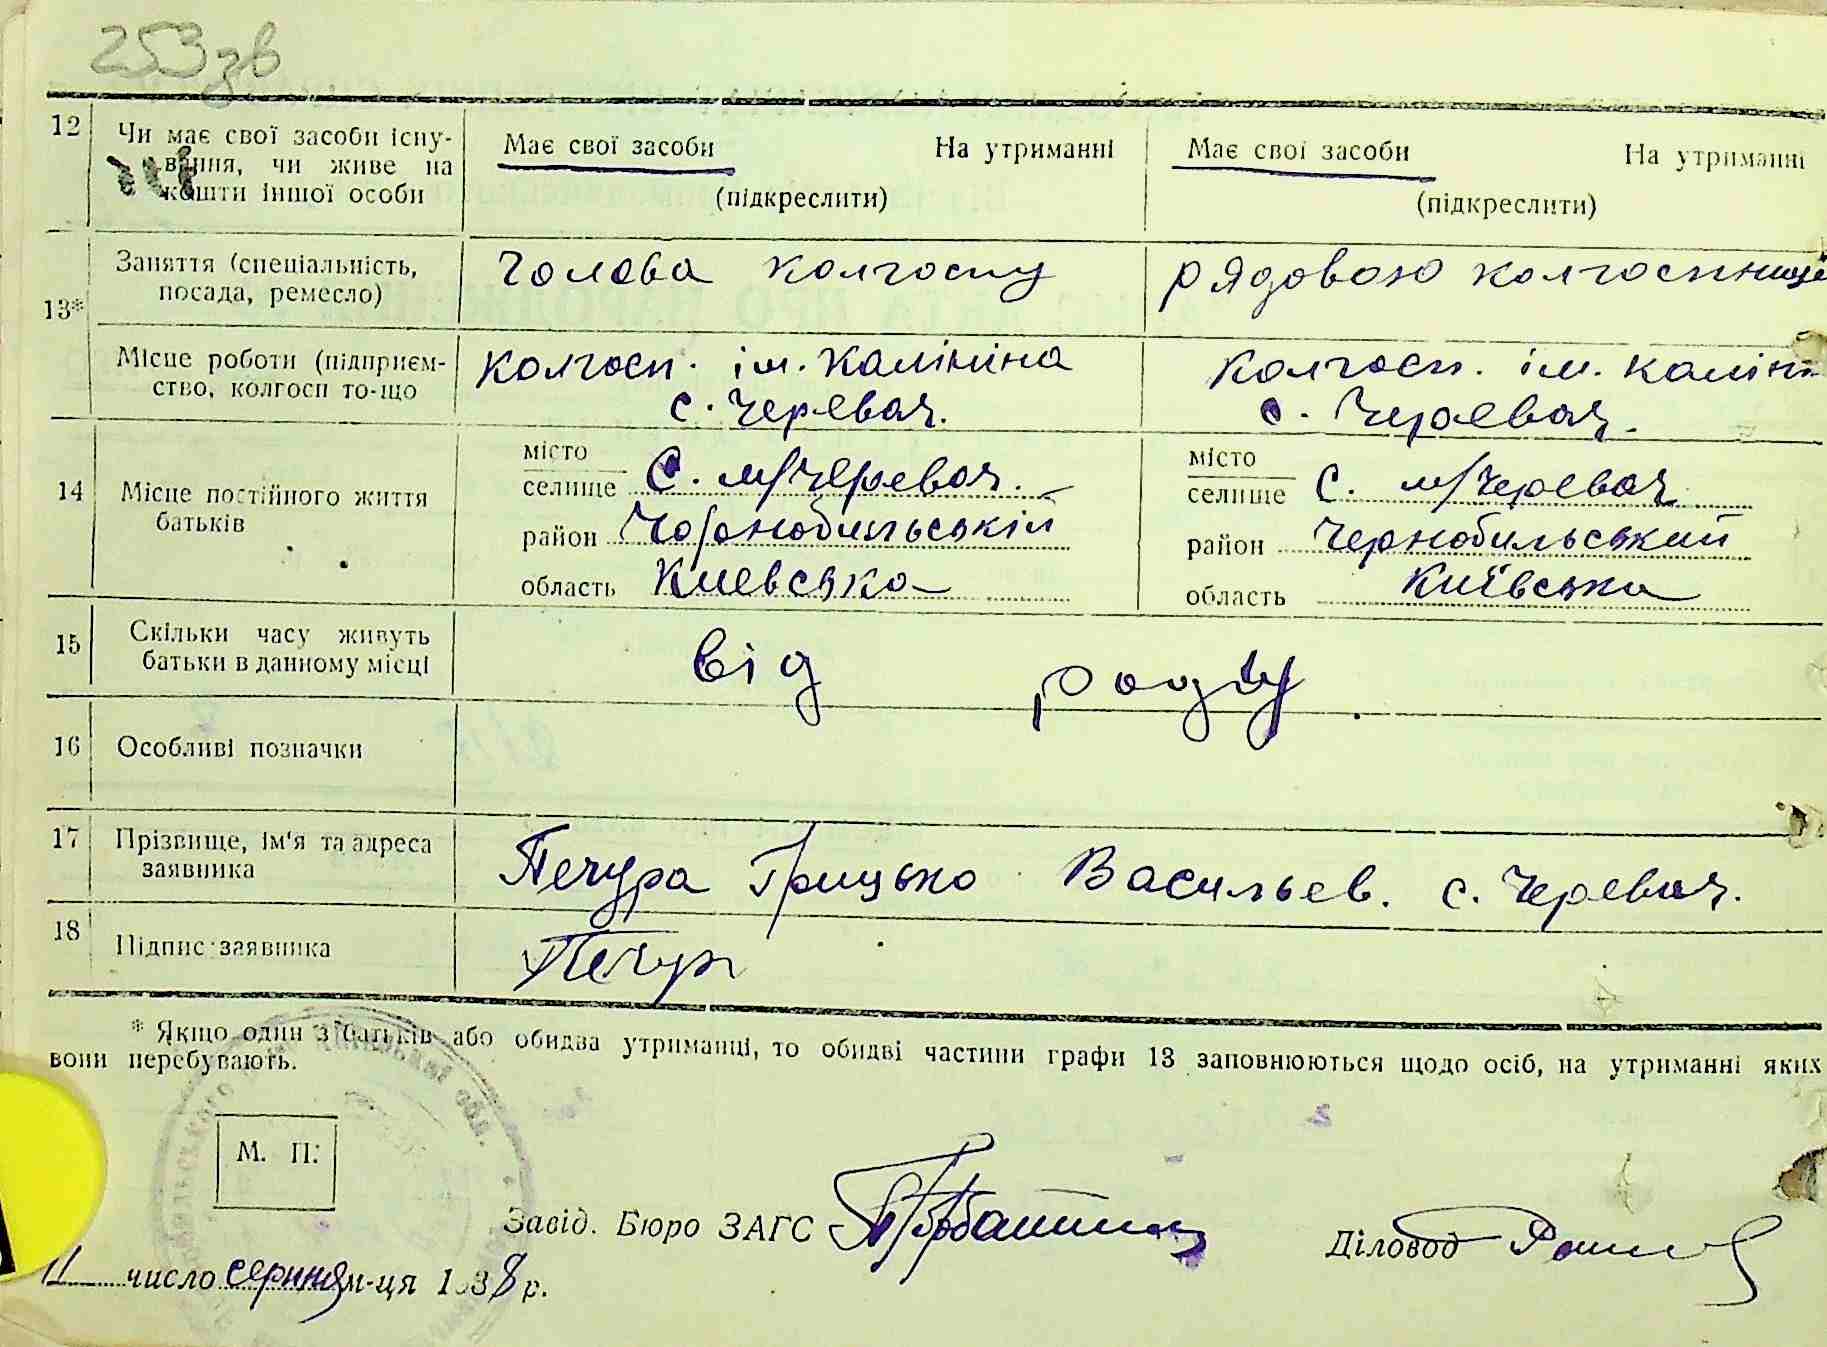 253 зв
12
Чи має свої засоби існу-
вання, чи живе на
кошти іншої особи
Має свої засоби На утриманні
(підкреслити)
Має свої засоби На утриманні
(підкреслити)
13*
Заняття (спеціальність,
посада, ремесло)
Голова колгоспу
рядовою колгоспнице
Місце роботи (підприєм-
ство, колгосп то-що
Колгосп. ім. Калініна
с. Черевач.
Колгосп. ім. Калін
с. Черевач.
14
Місце постійного життя
батьків
місто
селище С. м/Черевач.
район Чорнобильській
область Киевська
місто
селище С. м/Черевач
район Чернобильський
область Київська
15
Скільки часу живуть
батьки в данному місці
Від роду.
16
Особливі позначки
17
Прізвище, ім'я та адреса
заявника
Печура Грицько Васильев. с. Черевач.
18
Підпис заявника
Печур
* Якщо один з батьків або обидва утриманці, то обидві частини графи 13 заповнюються щодо осіб, на утриманні яких
вони перебувають.
М. П.
Завід. Бюро ЗАГС
Діловод
11 число серпня м-ця 1938 р.